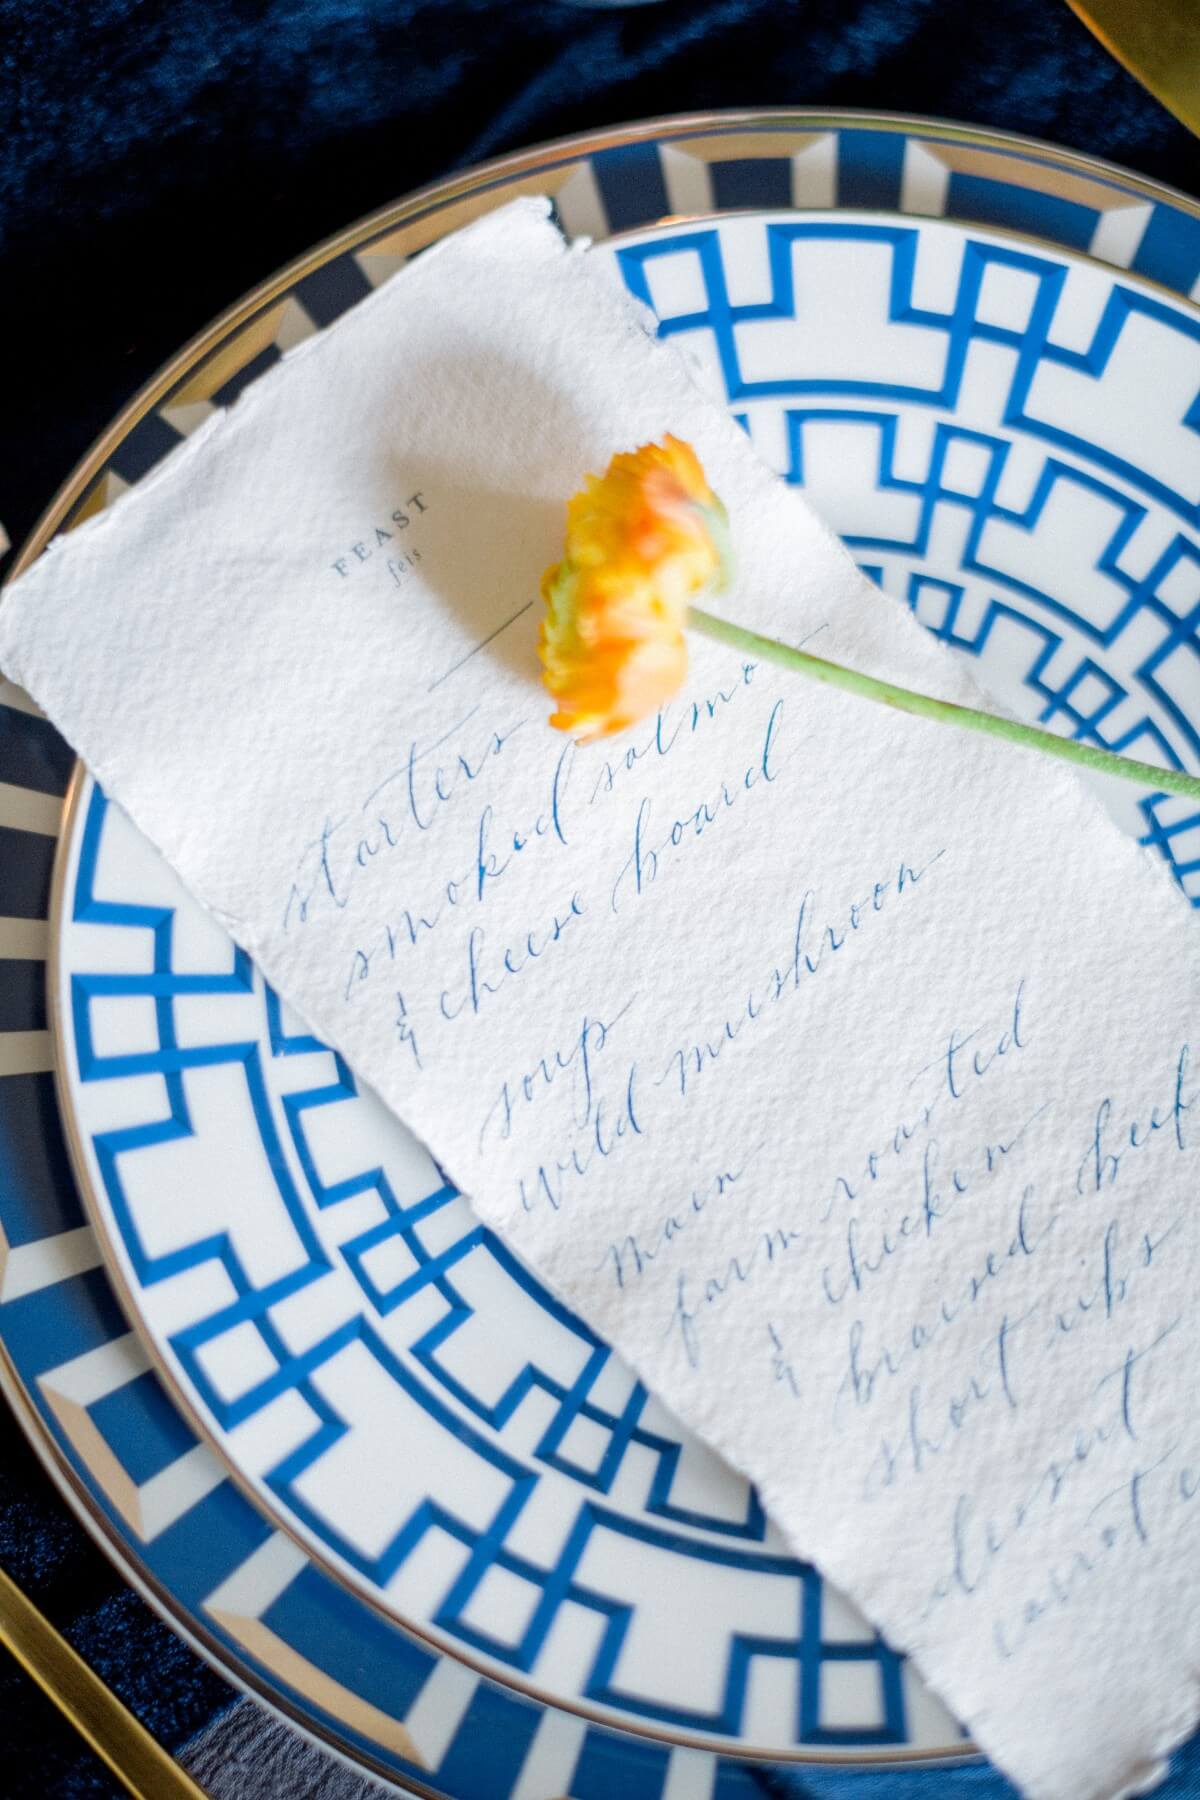 FEAST
feis
starters
smoked salmon
& cheese board
soup
wild mushroom
main
farm roasted
chicken
& braised beef
short ribs
dessert
carrot